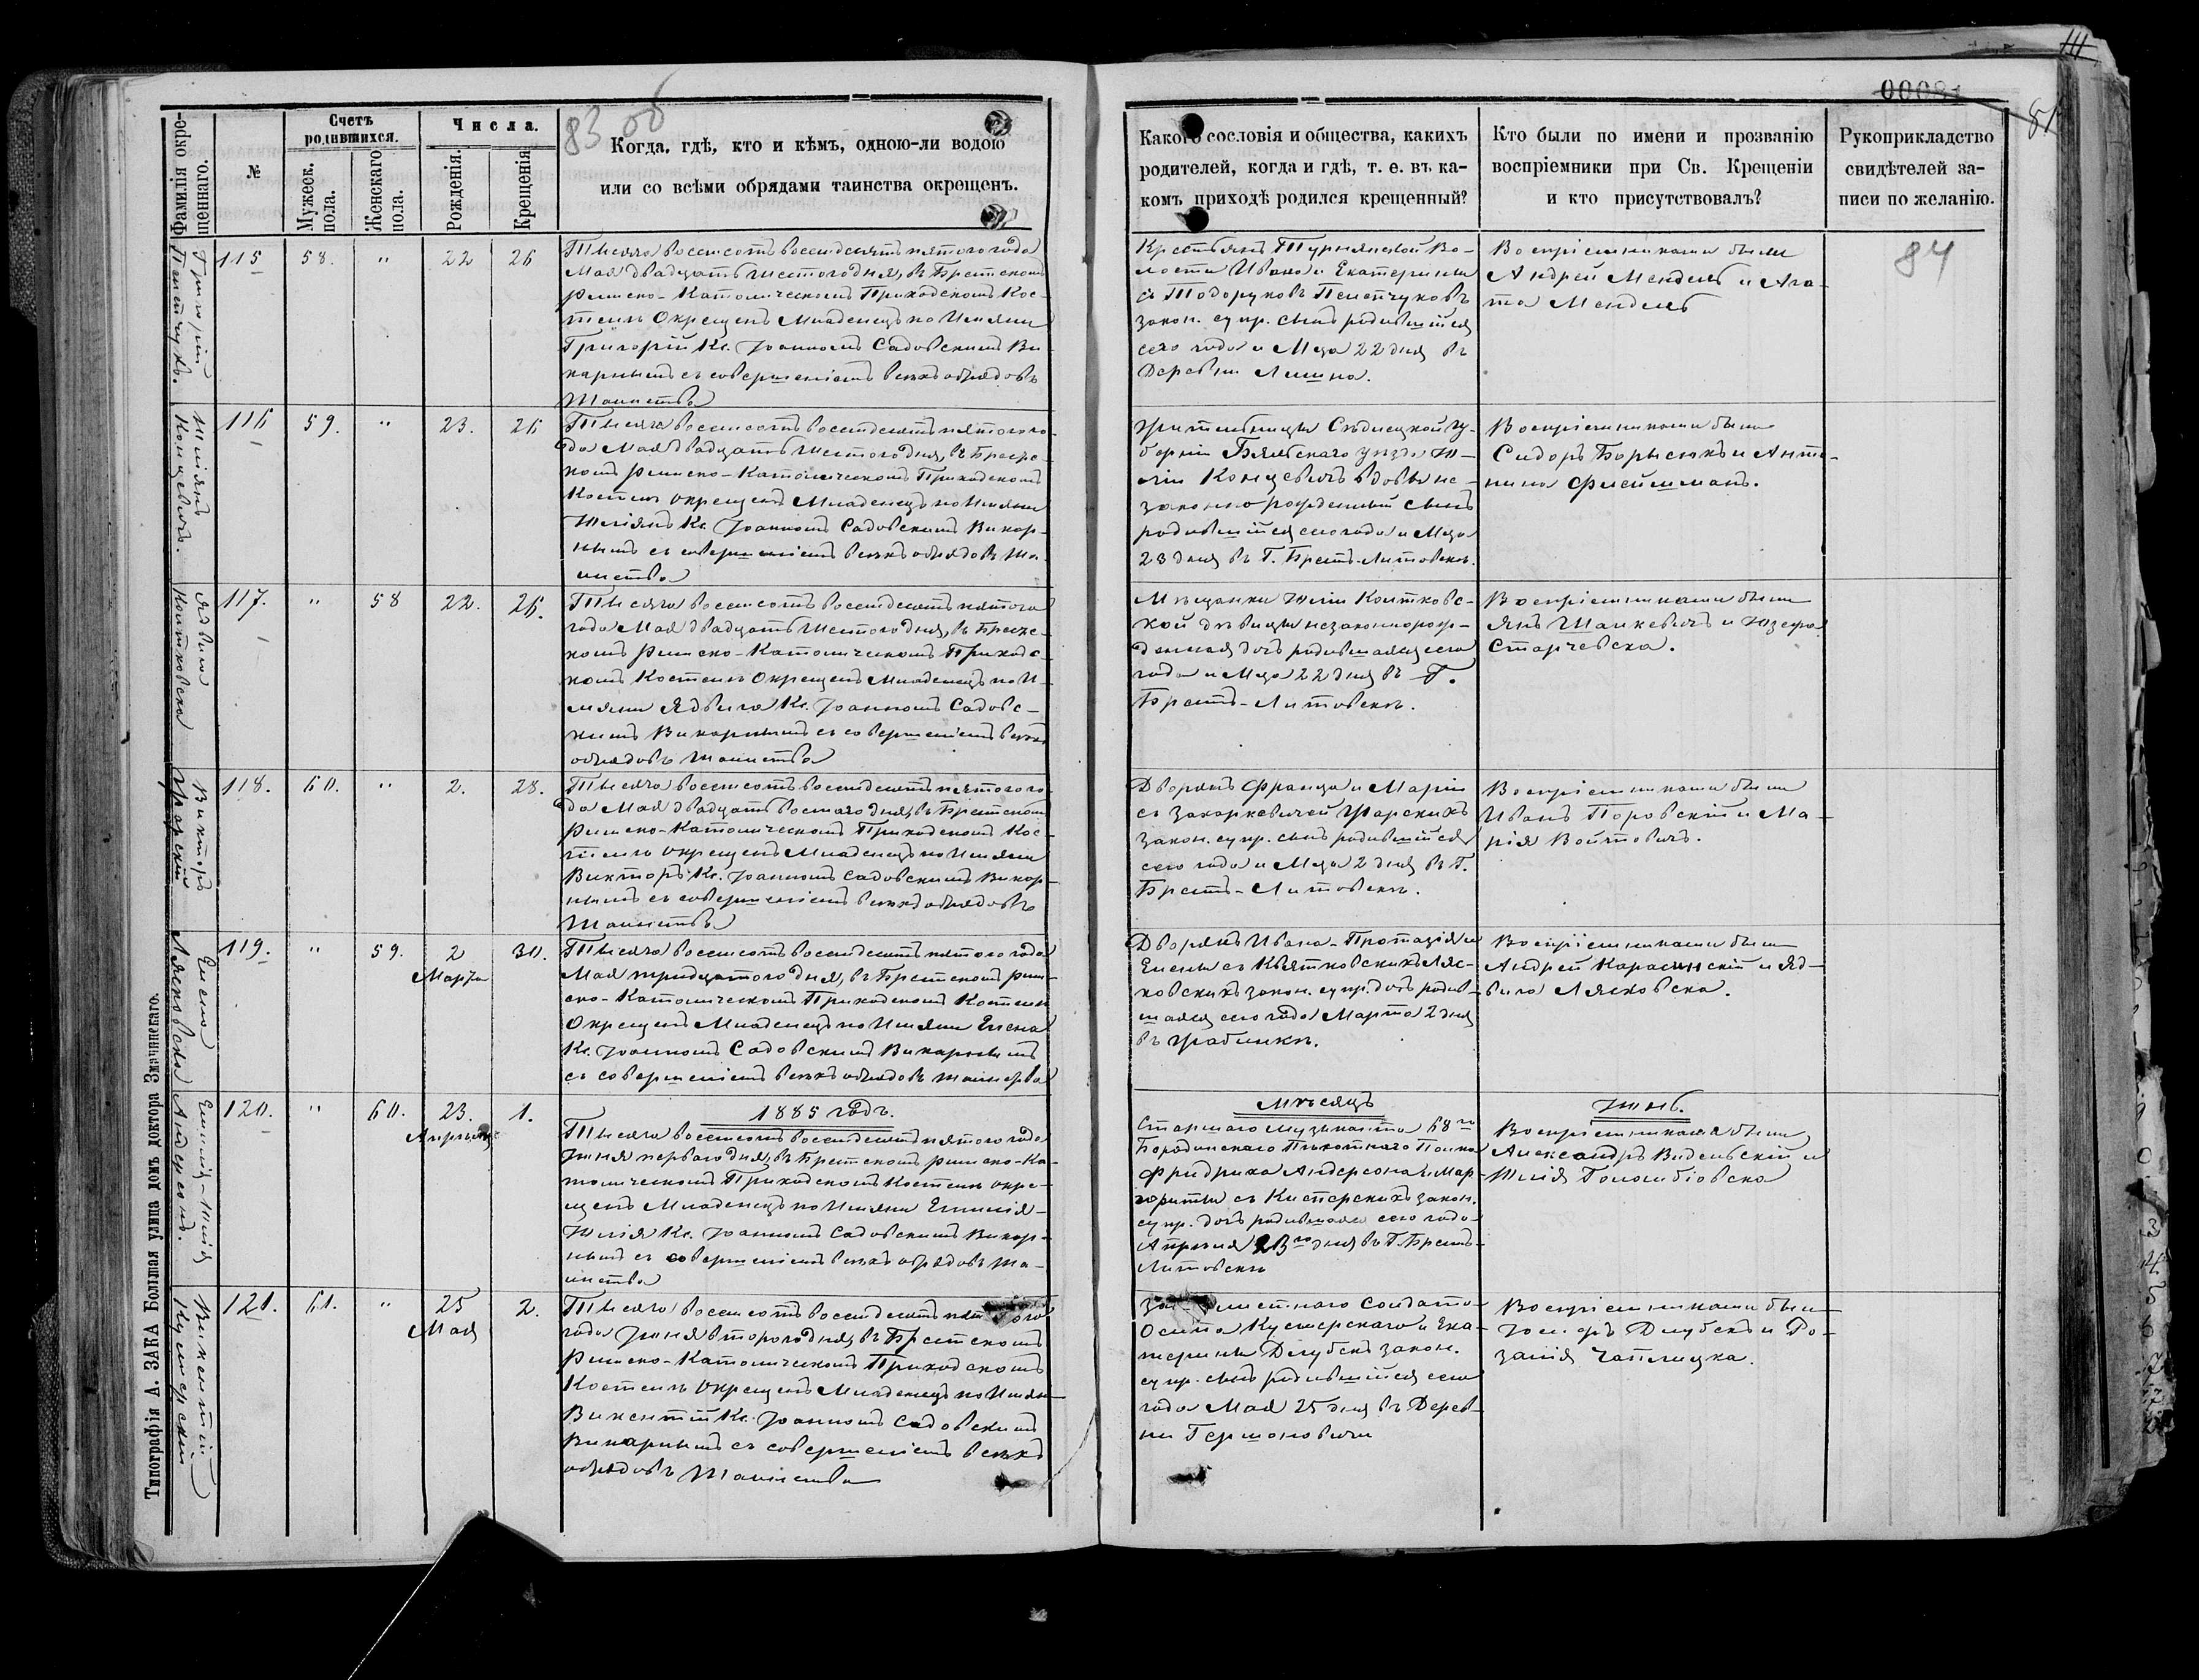 83 об
Фамилія окре-
щеннаго.
№
Счетъ
родившихся.
Мужеск.
пола.
Женскаго
пола.
Числа.
Рожденія.
Крещенія
Когда, гдѣ, кто и кѣмъ, одною-ли водою
или со всѣми обрядами таинства окрещенъ.
Григорій
115
58.
"
22
26
Тысяча восемсотъ восемдесятъ пятого года
Мая двадцать шестого дня, въ Брестскомъ
Римско-Католическомъ Приходскомъ Кос-
телѣ Окрещенъ Младенецъ по Имяни
Григорій Кс. Іоанномъ Садовскимъ Ви-
карнымъ съ совершеніемъ всѣхъ обрядовъ
Таинства
Юліянъ
Концевичъ.
116
59.
"
23.
26
Тысяча восемсотъ восемдесятъ пятого го-
да Мая двадцать шестого дня, въ Брест-
комъ Римско-Католическомъ Приходскомъ
Костелѣ окрещенъ Младенецъ по Имяни
Юліянъ Кс. Іоанномъ Садовскимъ Викар-
нымъ съ совершеніемъ всѣхъ обрядовъ Та-
инства
Ядвига
Коитковска
117.
"
58
22.
26.
Тысяча восемсотъ восемдесятъ пятого
года Мая двадцать шестого дня, въ Брест-
комъ Римско-Католическомъ Приходс-
комъ Костелѣ Окрещенъ Младенецъ по И-
мяни Ядвига Кс. Іоанномъ Садовс-
кимъ Викарнымъ съ совершеніемъ всѣхъ
обрядовъ таинства
Викторъ
118.
60.
"
2.
28.
Тысяча восемсотъ восемдесятъ пятого го-
да Мая двадцать восмаго дня, въ Брестскомъ
Римско-Католическомъ Приходскомъ Кос-
телѣ окрещенъ Младенецъ по Имяни
Викторъ Кс. Іоанномъ Садовскимъ Викар-
нымъ съ совершеніемъ всѣхъ обрядовъ
Таинства
Елена
Лясковска
119.
"
59.
2
Марта
30.
Тысяча восемсотъ восемдесятъ пятого года
Мая тридцатого дня, въ Брестскомъ Рим-
ско-Католическомъ Приходскомъ Костелѣ
Окрещенъ Младенецъ по Имяни Елена
Кс. Іоанномъ Садовскимъ Викарнымъ
съ совершеніемъ всѣхъ обрядовъ таинства
Емилія-Юлія
Андерсонъ.
120.
"
60.
23.
Апрѣля
1.
1885 годъ.
Тысяча восемсотъ восемдесятъ пятого года
Іюня перваго дня, въ Брестскомъ Римско-Ка-
толическомъ Приходскомъ Костелѣ окре-
щенъ Младенецъ по Имяни Емилія-
Юлія Кс. Іоанномъ Садовскимъ Викар-
нымъ съ совершеніемъ всѣхъ обрядовъ Та-
инства
Викентій
121.
61.
"
25
Мая
2.
Тысяча восемсотъ восемдесятъ пятого
года Іюня второго дня, въ Брестскомъ
Римско-Католическомъ Приходскомъ
Костелѣ окрещенъ Младенецъ по Имян-
Викентій Кс. Іоанномъ Садовскимъ
Викарнымъ съ совершеніемъ всѣхъ
обрядовъ Таинства
Типографія А. ЗАКА Большая улица домъ доктора Значинскаго.
00081
Какого сословія и общества, какихъ
родителей, когда и гдѣ, т. е. въ ка-
комъ приходѣ родился крещенный?
Кто были по имени и прозванію
воспріемники при Св. Крещеніи
и кто присутствовалъ?
Рукоприкладство
свидѣтелей за-
писи по желанію.
84
Крестьянъ Турнянской Во-
лости Ивана и Екатерины
съ Тодоруковъ
закон. супр. сынъ родившійся
сего года и Мца 22 дня въ
Деревни
Воспріемниками были
Андрей Мендель и Ага-
та Мендель
Жительницы Сѣдлецкой Гу-
берніи Бяльскаго уѣзда Ю-
ліи Концевичъ вдовы не-
законнорожденный сынъ
родившійся сего года и Мца
23 дня въ Г. Брестъ-Литовскѣ.
Воспріемниками были
Сидоръ Борысюкъ и Анто-
нина
Мѣщанки Юліи Коитковс-
кой дѣвицы незаконнорож-
денная дочь родившаяся сего
года и Мца 22 дня въ Г.
Брестъ-Литовскѣ.
Воспріемниками были
Янъ Шанкевичъ и Юзефа
Старчевска.
Дворянъ Франца и Маріи
съ Захаркевичей
закон. супр. сынъ родившійся
сего года и Мца 2 дня въ Г.
Брестъ-Литовскѣ.
Воспріемниками были
Иванъ Поровскій и Ма-
рія Войтовичъ.
Дворянъ Ивана-Протазія и
Елены съ Квятковскихъ Ляс-
ковскихъ закон. супр. дочь родив-
шаяся сего года Марта 2 дня
въ
Воспріемниками были
Андрей Карасинскій и Яд-
вига Лясковска.
Мѣсяцъ
Старшаго Музыканта 68го
Бородинскаго Пѣхотнаго Полка
Фридриха Андерсона и Мар-
гариты съ Кистерскихъ закон.
супр. дочь родившаяся сего года
Апрѣля 23го дня въ Г. Брестъ-
Литовскѣ
Іюнь.
Воспріемниками были
Александръ Видельскій и
Юлія Голомбіовска
солдата
Осипа Кушерскаго и Ека-
терины Длубекъ закон.
супр. сынъ родившійся сего
года Мая 25 дня въ Дерев-
ни Гершоновичи
Воспріемниками были
Длубекъ и Ро-
залія Чаплицка.